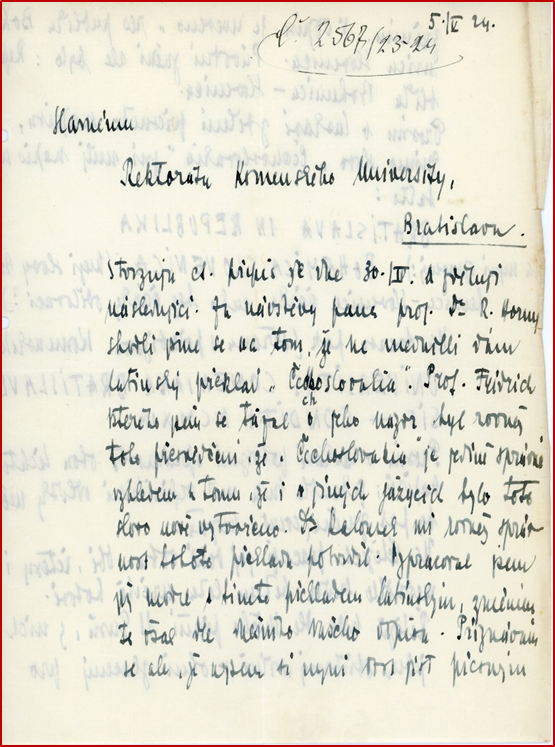 5./V 24.
č 2567/23-24
Slavnému
Rektorátu Komenského University,
Bratislava.
Stvrzuji ct. přípis ze dne 30. IV. a sděluji
následující. Za návštěvy pana prof. Dr. R. Horny
shodli jsme se na tom, že
latinský překlad „Čechoslovakia" Prof. Feidrich
kterého jsem se tázal o jeho názor, byl rovněž
toho přesvědčení, že Čechoslovakia je jedině správné
vzhledem k tomu, že i v jiných jazycích bylo toto
slovo nově vytvořeno. Dr mi rovněž správ
nost tohoto překladu potvrdil. Zpracoval jsem
již s tímto překladem latinským, změním
to však dle Vašeho. Přiznávám
se ale, že nyní jist